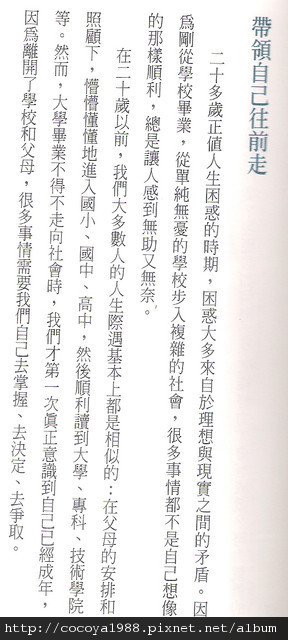 帶領自己往前走
二十多歲正值人生困惑的時期，困惑大多來自於理想與現實之間的矛盾。因
為剛從學校畢業，從單純無憂的學校步入複雜的社會，很多事情都不是自己想像
的那樣順利，總是讓人感到無助又無奈。
在二十歲以前，我們大多數人的人生際遇基本上都是相似的：在父母的安排和
照顧下，懵懵懂懂地進入國小、國中、高中，然後順利讀到大學、專科、技術學院
等。然而，大學畢業不得不走向社會時，我們才第一次真正意識到自己已經成年，
因為離開了學校和父母，很多事情需要我們自己去掌握、去決定、去爭取。
http://cocoya1988.pixnet.net/album